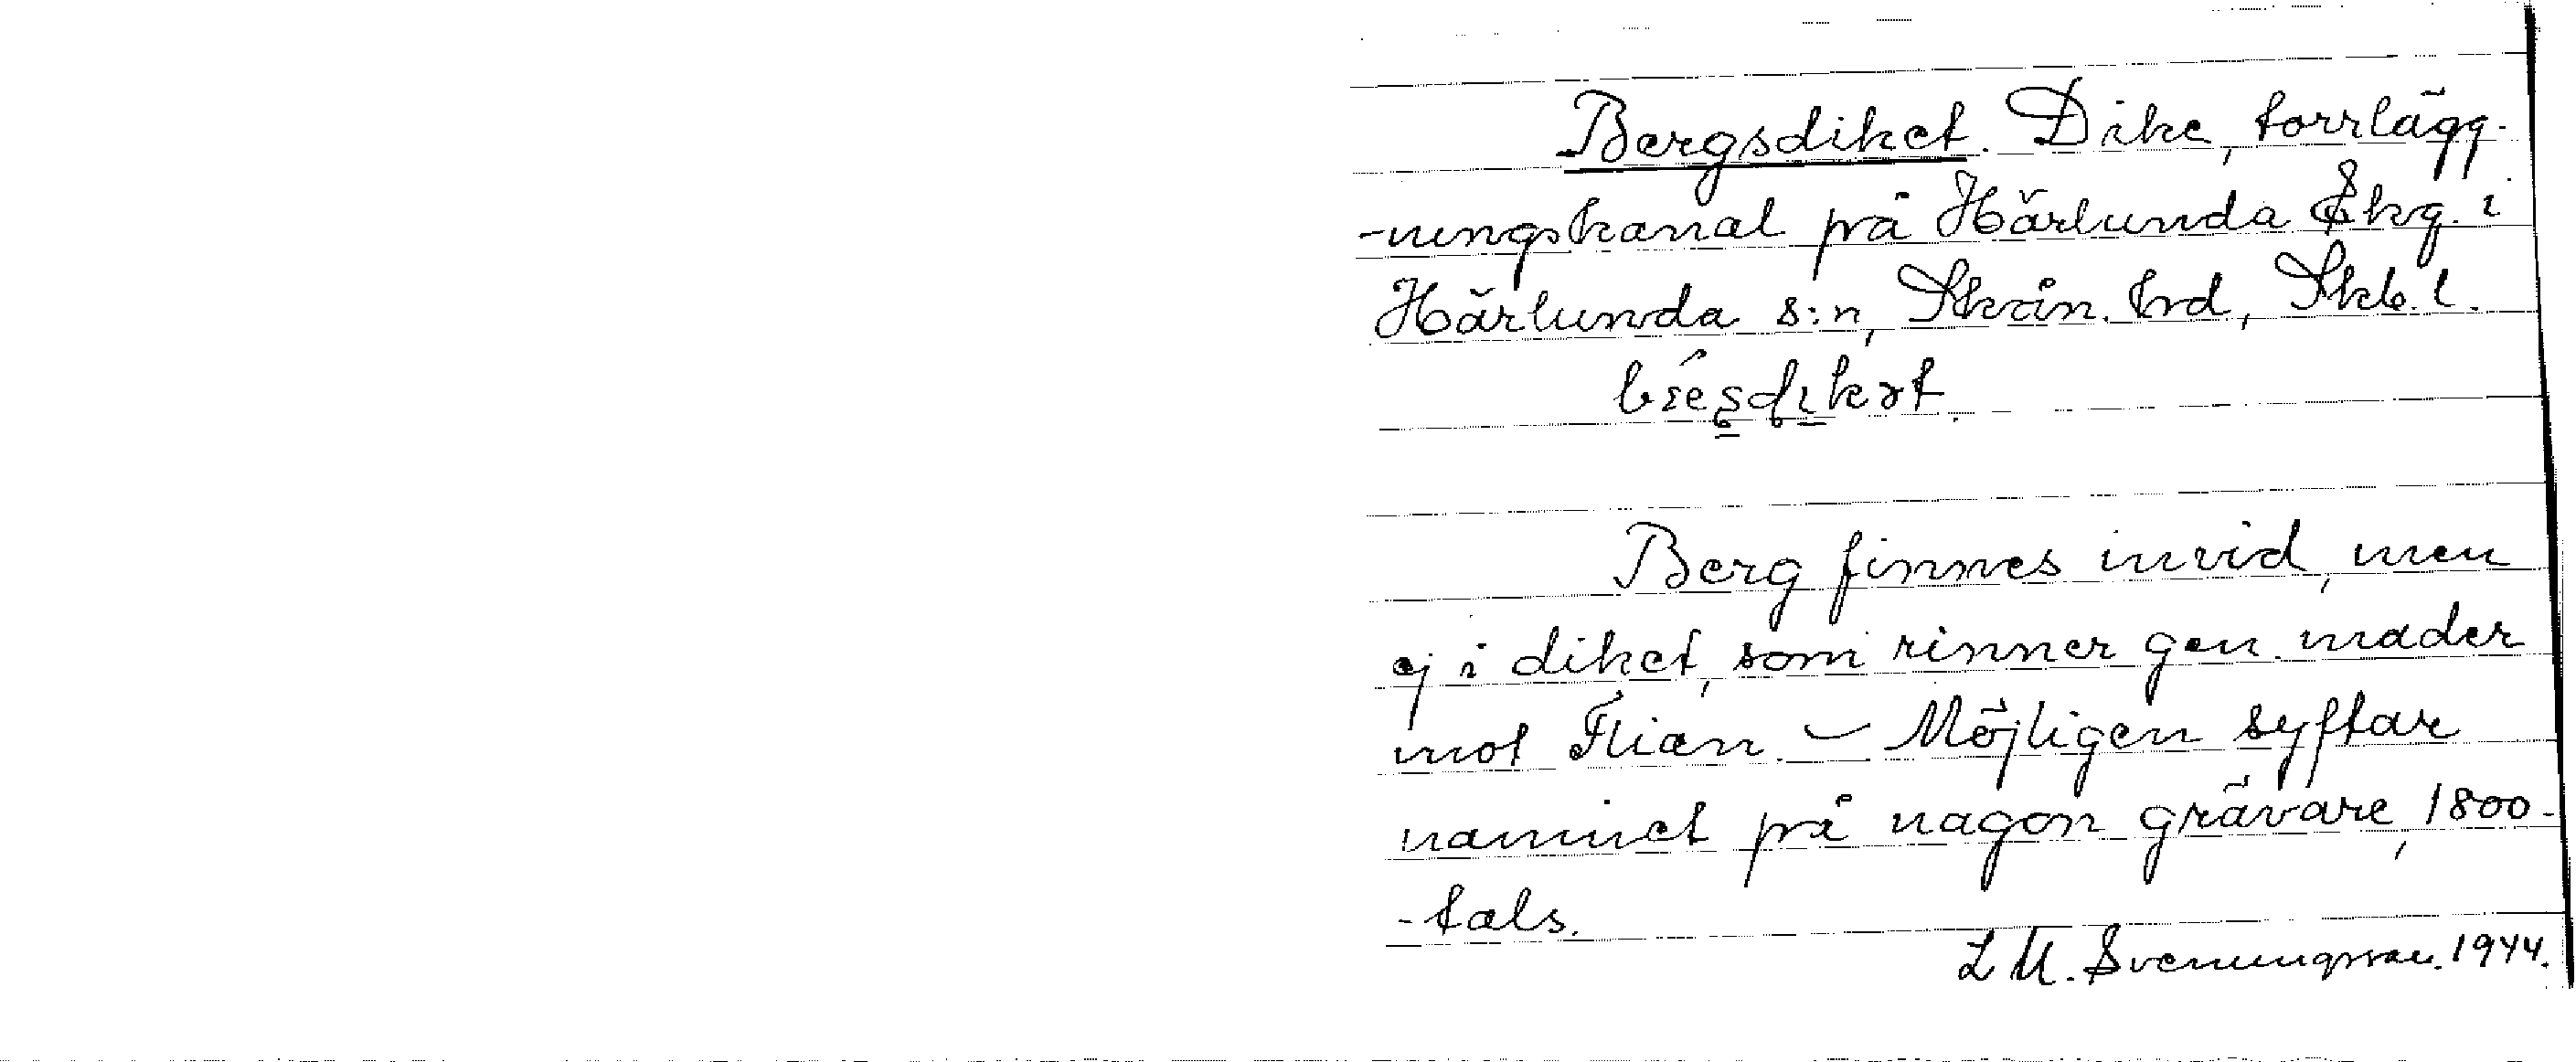 Bergsdiket. Dike, torrlägg-
-ningskanal på Härlunda Skg. i
Härlunda s:n, Skån. hrd, Skb. l.
Berg finnes invid, men
ej i diket, som rinner gen. mader
mot Flian. – Möjligen syftar
namnet på nagon grävare, 1800-
-tals.
L M. Svenungsson. 1944.